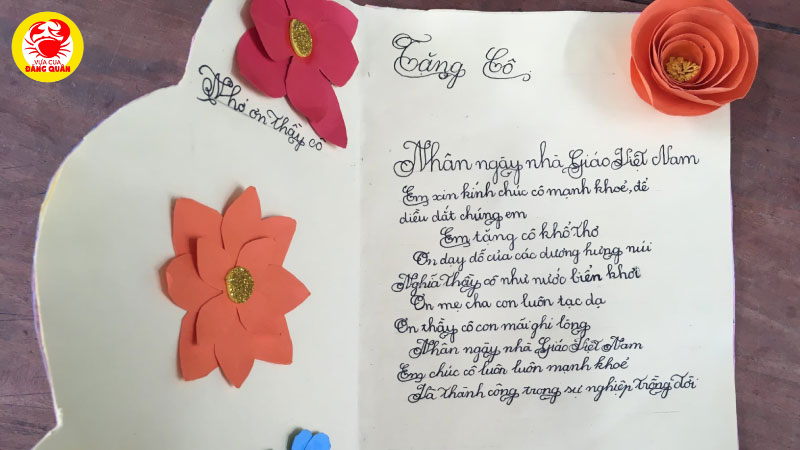 VỰA CUA
ĐĂNG QUÂN
Nhớ ơn thầy cô
Tặng Cô
Nhân ngày nhà Giáo Việt Nam
Em xin kính chúc cô mạnh khoẻ, để
diều dắt chúng em
Em tặng cô khổ thơ
Ơn dạy dỗ của các dương hưng núi
Nghĩa thầy cô như nước biển khơi
Ơn mẹ cha con luôn tạc dạ
Ơn thầy cô con mãi ghi lòng
Nhân ngày nhà Giáo Việt Nam
Em chúc cô luôn luôn mạnh khoẻ
Và thành công trong sự nghiệp trồng